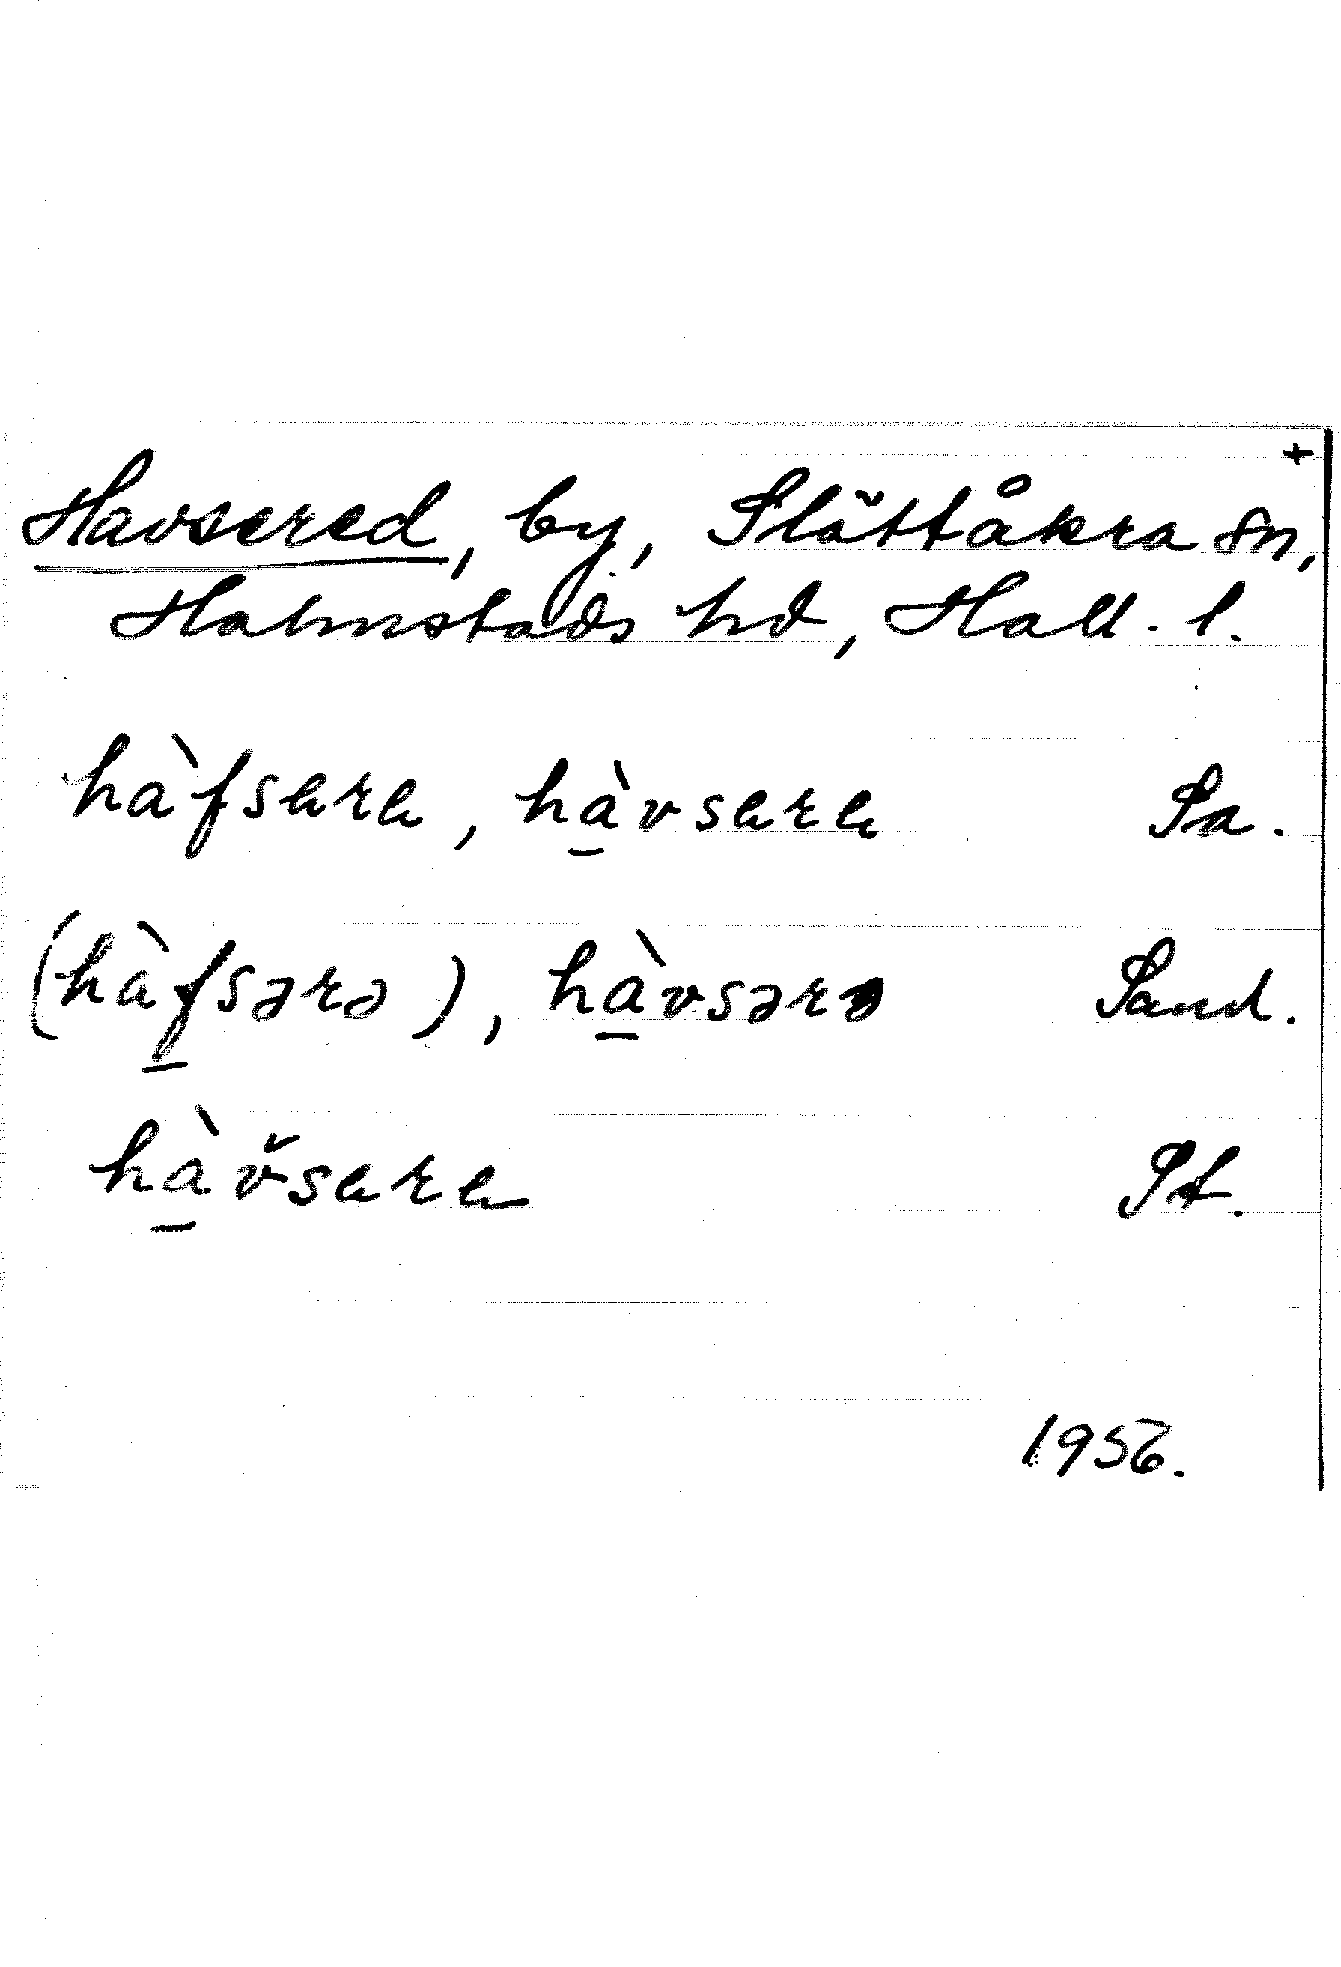 +
Havsered, by, Slättåkra sn,
Halmstads hd, Hall. l.
hàfsara, hàvsara Sa.
(hàfsərə), hàvsərə Sand.
hàv̌sara St.
1956.